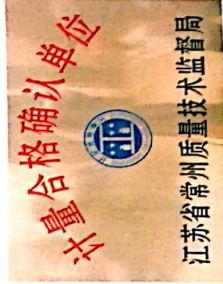 计量合格确认单位
江苏省常州质量技术监督局